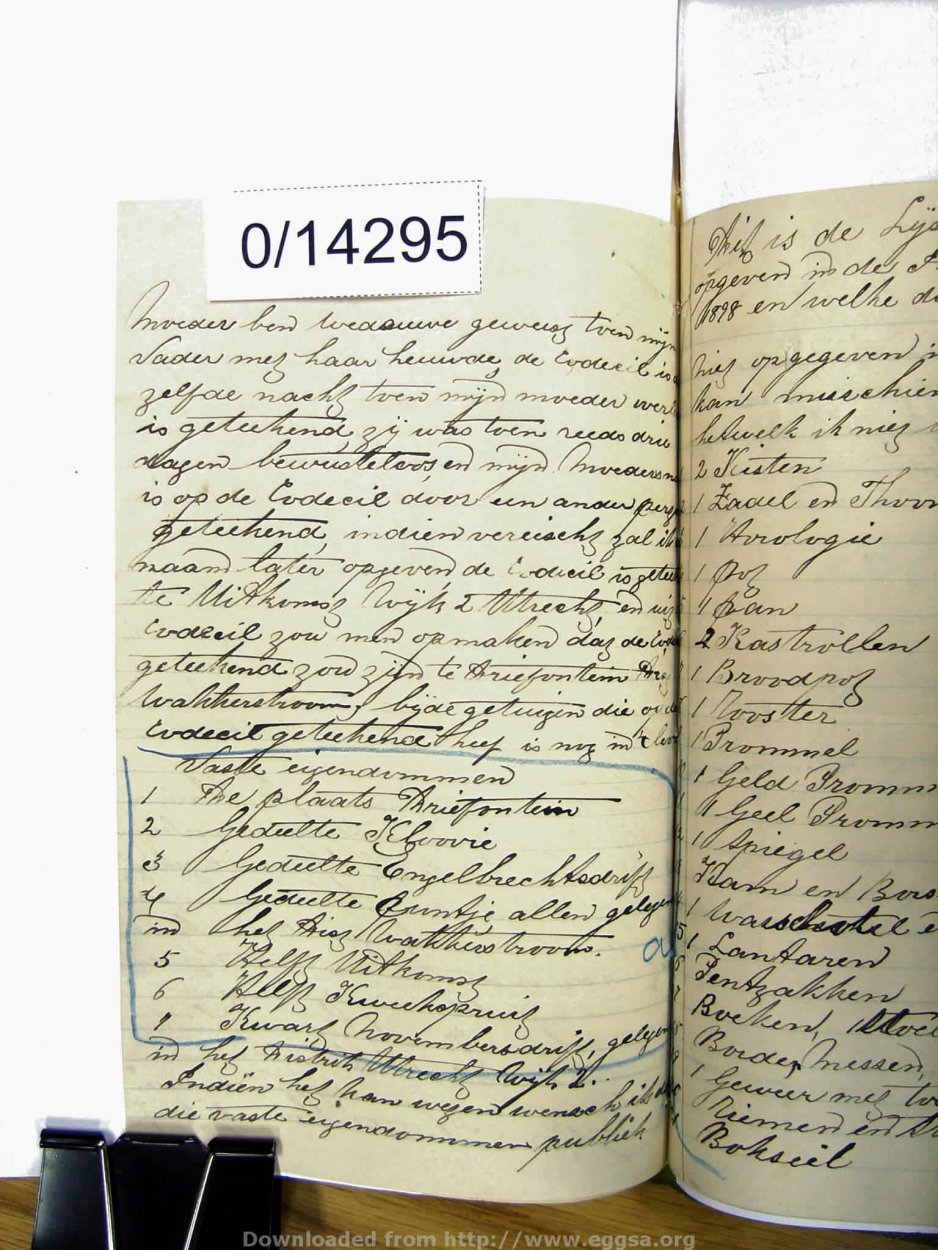 0/14295
Moeder een weduwe geweest toen mijn
Vader met haar heuwde, de Codecil is
zelfde nacht toen mijn moeder over
is geteekend, zij was toen reeds drie
dagen bewusteloos en mijn Moeders
is op de Codecil door een ander
geteekend, indien vereischt zal ik
maand later opgeven de Codicil is
te Uitkomst Wijk 2 Utrecht en uit
Codecil zou men opmaken dat de
geteekend zou zijn te Driefontein
Wakkerstroom, bijde getuigen die op de
Codecil geteekend heef is nog in 't
Vaste eigendommen
1 De plaats Driefontein
2 Gedeelte
3 Gedeelte Engelbrechtsdrift
4 Gedeelte Puntje allen gelegen
in het Dist Wakkerstroom.
5 Helft Uitkomst
6 Helft Kweekspruit
7 Kwart Novembersdrift, gelegen
in het District Utrecht Wijk 2.
Indiën het kan wezen wensch ik
die vaste eigendommen publiek
Dit is de Lijs
opgeven in de
1898 en welke
niet opgegeven
kan misschien
hetwelk ik niet
2 Kisten
1 Zadel en Thoom
1 Horologie
1 Pot
1 Pan
2 Kastrollen
1 Broodpot
1 Rooster
1 Trommel
1 Geld Tromm
1 Geel Tromm
1 Spiegel
Kam en Bors
1 Waschstel e
1 Lantaren
Tentzakken
Boeken, 1 Stoel
Borden, Messen,
1 Geweer met
Riemen en
Bokseil
Downloaded from http://www.eggsa.org